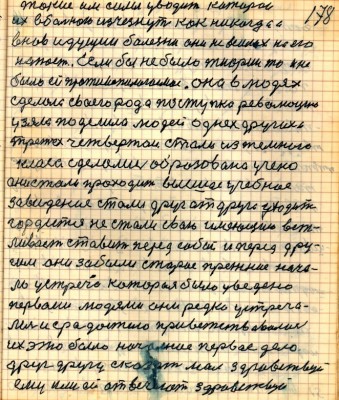 178
такие им силы уводит которой
их в балкой исчезнут как никогда а
вновь идущии балезни они на него
нападут. Если бы небыло теории то оне
было ей противоположности. она в людях
сделала своего рода поступко революцию
узяла поделила людей однех других и
третих четвертой стали из темного
класа сделоми оброзована учено
они стали проходит высшее учебное
заведение стали друг от друга уходит
гордится не стали свою имеющию веж-
ливаст ставит перед собой и перед дру-
гим они забыли старое прежние нача-
ло устреча которая было уведено
первами людями они редко устреча-
лися с радостию приветствовалис
их это было начальное первае дело
друг другу сказат мол здравствуй
ему или ей отвечают здравствуй